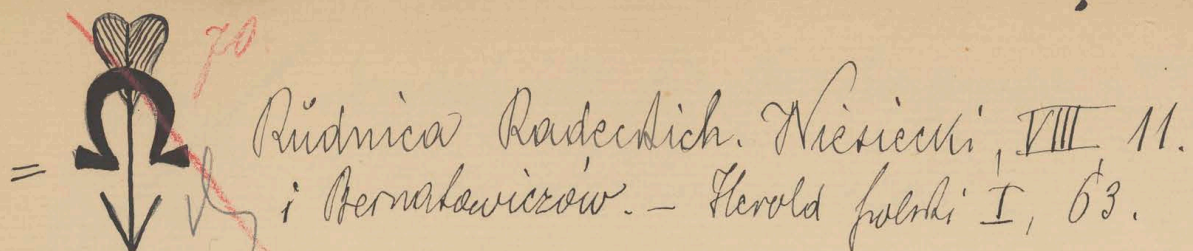 70
= Rŭdnica Radeckich. Niesiecki, VIII, 11.
i Bernatowiczów. – Herold polski I, 63.